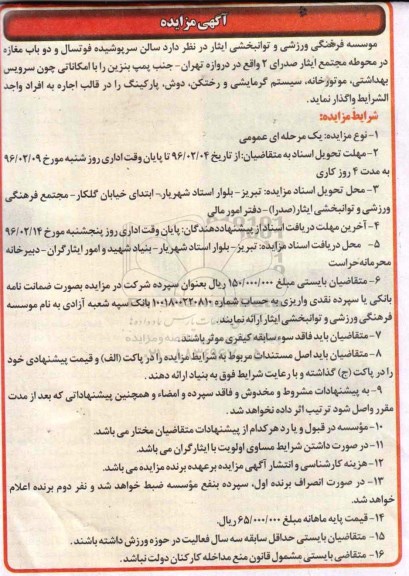 آگهی مزایده
موسسه فرهنگی ورزشی و توانبخشی ایثار در نظر دارد سالن سرپوشیده فوتسال و دو باب مغازه
در محوطه مجتمع ایثار صدرای ۲ واقع در دروازه تهران - جنب پمپ بنزین را با امکاناتی چون سرویس
بهداشتی، موتورخانه، سیستم گرمایشی و رختکن، دوش، پارکینگ را در قالب اجاره به افراد واجد
الشرایط واگذار نماید.
شرایط مزایده:
۱- نوع مزایده: یک مرحله ای عمومی
۲- مهلت تحویل اسناد به متقاضیان: از تاریخ ۹۶/۰۲/۰۴ تا پایان وقت اداری روز شنبه مورخ ۹۶/۰۲/۰۹
به مدت ۴ روز کاری
۳- محل تحویل اسناد مزایده: تبریز- بلوار استاد شهریار- ابتدای خیابان گلکار- مجتمع فرهنگی
ورزشی و توانبخشی ایثار (صدرا) - دفتر امور مالی
۴- آخرین مهلت دریافت اسناد از پیشنهاددهندگان: پایان وقت اداری روز پنجشنبه مورخ ۹۶/۰۲/۱۴
۵- محل دریافت اسناد مزایده: تبریز- بلوار استاد شهریار- بنیاد شهید و امور ایثارگران - دبیرخانه
محرمانه حراست
۶- متقاضیان بایستی مبلغ ۱۵۰/۰۰۰/۰۰۰ ریال بعنوان سپرده شرکت در مزایده بصورت ضمانت نامه
بانکی یا سپرده نقدی واریزی به حساب شماره ۱۰۰۱۸۰۰۲۲۰۸۱۰ بانک سپه شعبه آزادی به نام موسسه
فرهنگی ورزشی و توانبخشی ایثار ارائه نمایند.
۷- متقاضیان باید فاقد سوء سابقه کیفری موثر باشند.
۸- متقاضیان باید اصل مستندات مربوط به شرایط مزایده را در پاکت (الف) و قیمت پیشنهادی خود
را در پاکت (ج) گذاشته و با رعایت شرایط فوق به بنیاد ارائه دهند.
۹- به پیشنهادات مشروط و مخدوش و فاقد سپرده و امضاء و همچنین پیشنهاداتی که بعد از مدت
مقرر واصل شود ترتیب اثر داده نخواهد شد.
۱۰- مؤسسه در قبول و یا رد هر کدام از پیشنهادات متقاضیان مختار می باشد.
۱۱- در صورت داشتن شرایط مساوی اولویت با ایثارگران می باشد.
۱۲- هزینه کارشناسی و انتشار آگهی مزایده بر عهده برنده مزایده می باشد.
۱۳- در صورت انصراف برنده اول، سپرده بنفع مؤسسه ضبط خواهد شد و نفر دوم برنده اعلام
خواهد شد.
۱۴- قیمت پایه ماهانه مبلغ ۶۵/۰۰۰/۰۰۰ ریال.
۱۵- متقاضیان بایستی حداقل سابقه سه سال فعالیت در حوزه ورزش داشته باشند.
۱۶- متقاضی بایستی مشمول قانون منع مداخله کارکنان دولت نباشد.